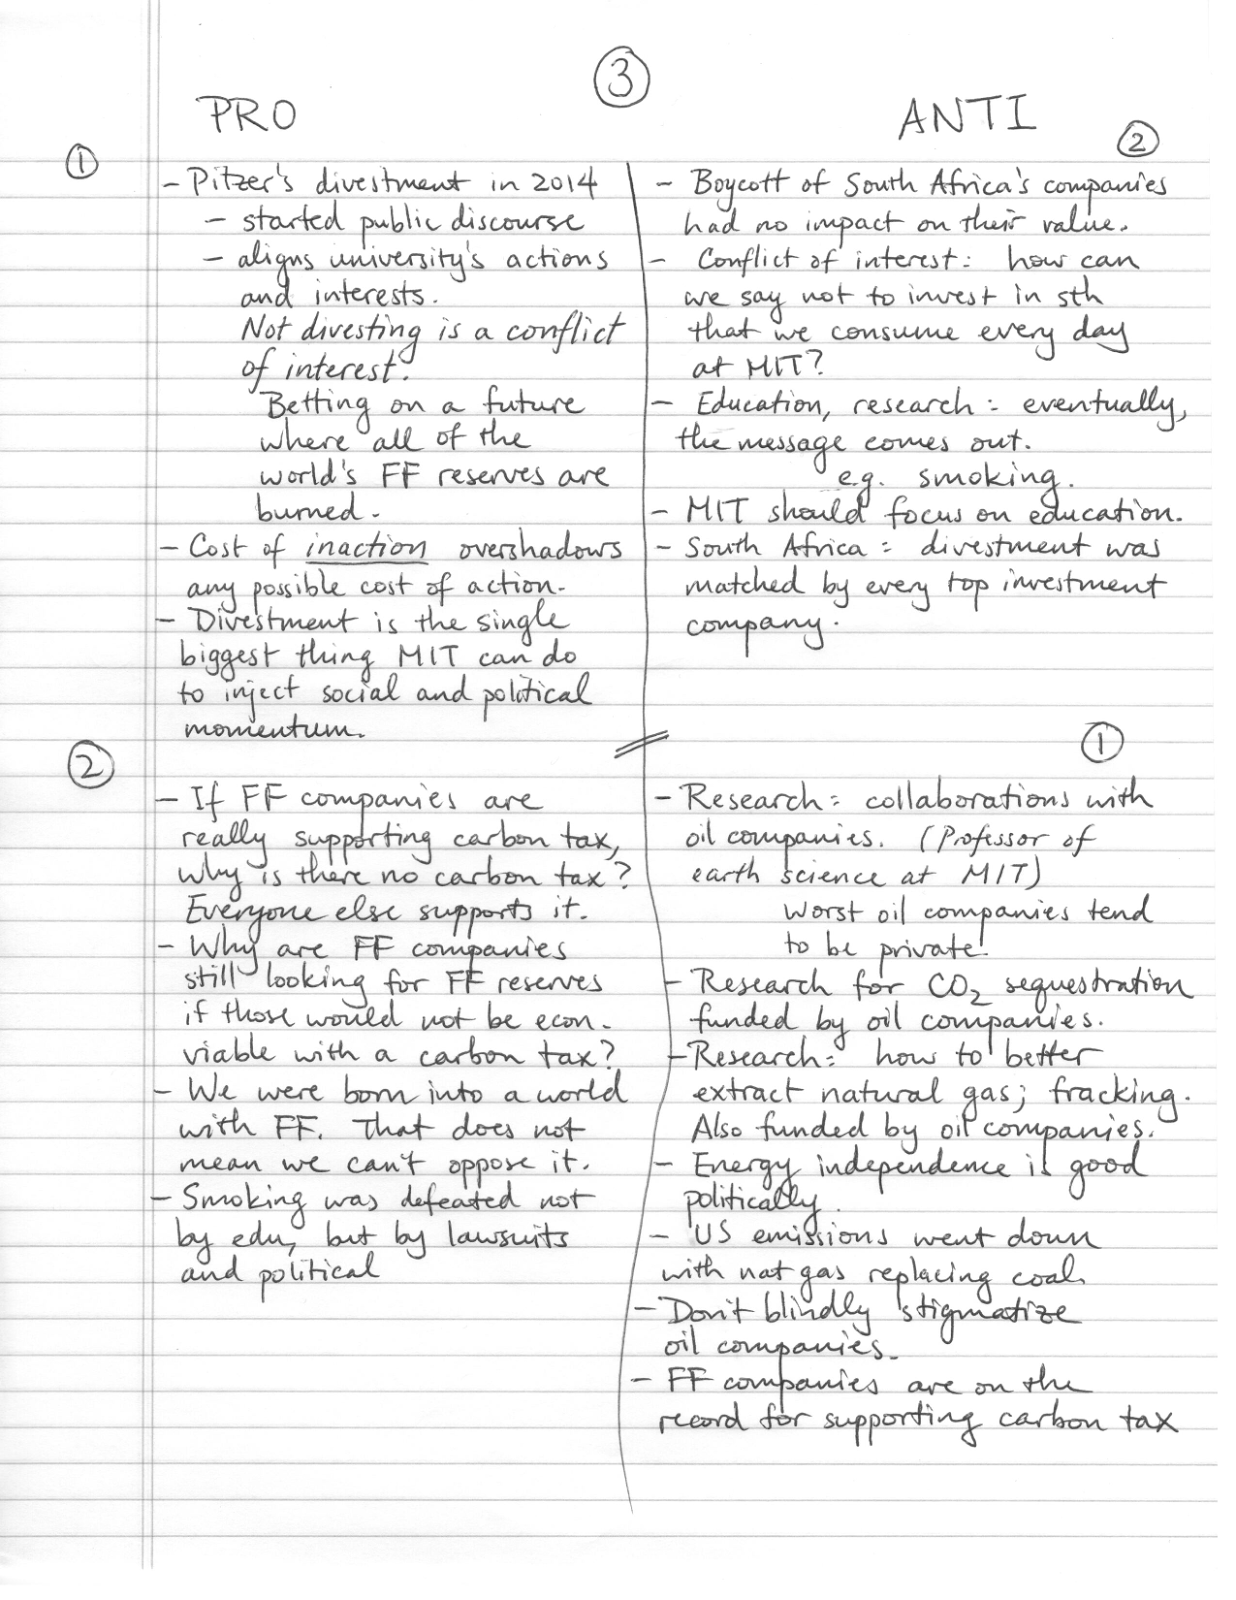 3
PRO
ANTI
1
- Pitzer's divestment in 2014
- started public discourse
- aligns university's actions
and interests.
Not divesting is a conflict
of interest.
Betting on a future
where all of the
world's FF reserves are
burned.
- Cost of inaction overshadows
any possible cost of action.
- Divestment is the single
biggest thing MIT can do
to inject social and political
momentum.
2
- If FF companies are
really supporting carbon tax,
why is there no carbon tax?
Everyone else supports it.
- Why are FF companies
still looking for FF reserves
if those would not be econ.
viable with a carbon tax?
- We were born into a world
with FF. That does not
mean we can't oppose it.
- Smoking was defeated not
by edu, but by lawsuits
and political
2
- Boycott of South Africa's companies
had no impact on their value.
- Conflict of interest: how can
we say not to invest in sth
that we consume every day
at MIT?
- Education, research: eventually,
the message comes out.
e.g. smoking.
- MIT should focus on education.
- South Africa: divestment was
matched by every top investment
company.
1
- Research: collaborations with
oil companies. (Professor of
earth science at MIT)
Worst oil companies tend
to be private.
- Research for CO2 sequestration
funded by oil companies.
- Research: how to better
extract natural gas; fracking.
Also funded by oil companies.
- Energy independence is good
politically.
- US emissions went down
with nat gas replacing coal.
- Don't blindly stigmatize
oil companies.
- FF companies are on the
record for supporting carbon tax